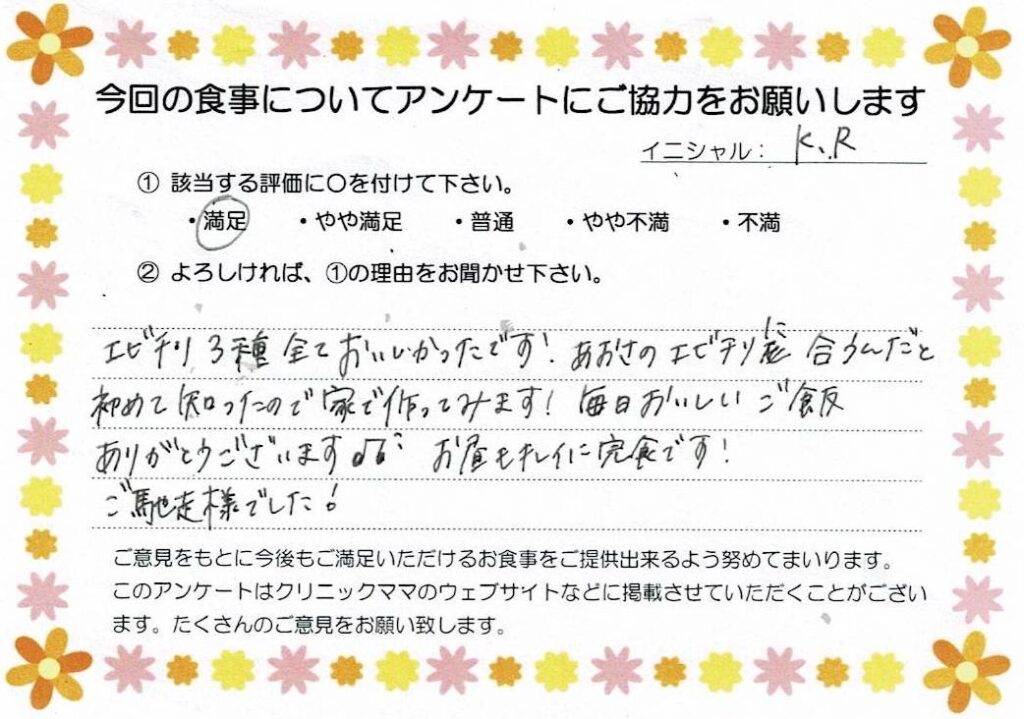 今回の食事についてアンケートにご協力をお願いします
イニシャル： K、R
① 該当する評価に〇を付けて下さい。
・満足 ・やや満足 ・普通 ・やや不満 ・不満
② よろしければ、①の理由をお聞かせ下さい。
エビチリ3種全ておいしかったです！あおさのエビチリに合うんだと
初めて知ったので家で作ってみます！毎日おいしいご飯
ありがとうございます♫ お昼もキレイに完食です！
ご馳走様でした！
ご意見をもとに今後もご満足いただけるお食事をご提供出来るよう努めてまいります。
このアンケートはクリニックママのウェブサイトなどに掲載させていただくことがござい
ます。たくさんのご意見をお願い致します。